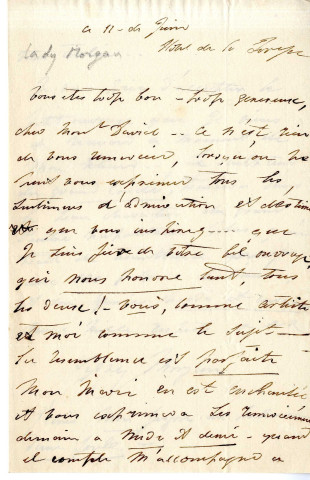 ce 11 - de Juin
Hotel de la Terrasse
Lady Morgan
Vous etes trop bon - trop genereuse,
cher Monsr David - - ce n'est rien
de vous remercier, lorsqu'on ne
peut vous exprimer tous les
sentimens d'admiration et d'estime
que vous inspirez - - que
Je suis fiere de votre bel ouvrage,
qui nous honore tant, tous
les deux! - vous, comme artiste
et moi comme le sujet -
La resemblance est parfaite
Mon Mari en est enchantée
et vous exprimera ses remerciemens
demain a midi et demi - quand
il compte m'accompagner a